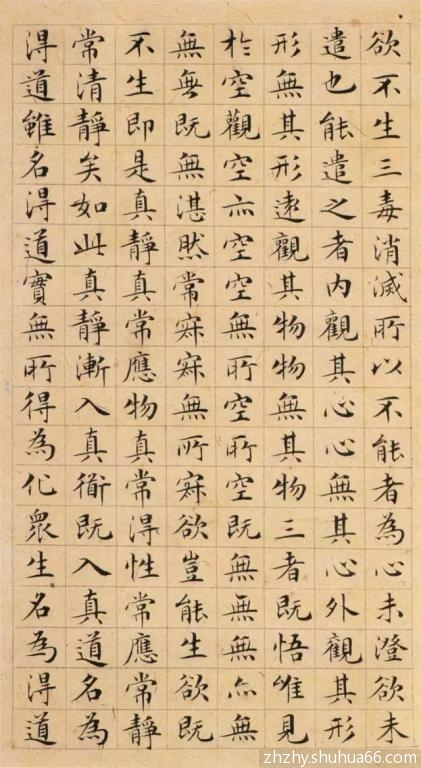 欲不生三毒消滅所以不能者為心未澄欲未
遣也能遣之者內觀其心心無其心外觀其形
形無其形遠觀其物物無其物三者既悟唯見
於空觀空亦空空無所空所空既無無無亦無
無無既無湛然常寂寂無所寂欲豈能生欲既
不生即是真靜真常應物真常得性常應常靜
常清靜矣如此真靜漸入真衜既入真道名為
得道雖名得道實無所得為化眾生名為得道
zhzhy.shuhua66.com